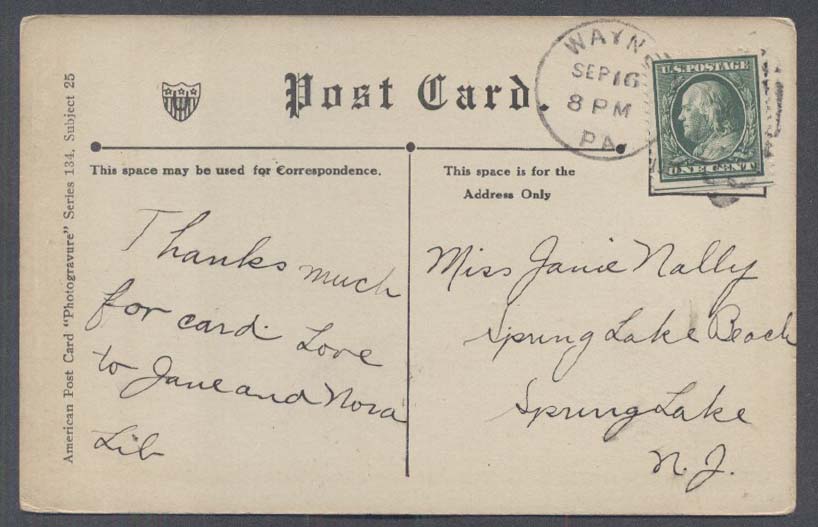 Post Card.
This space may be used for Correspondence.
This space is for the
Address Only
WAYNE
SEP 16
8 PM
PA.
U.S. POSTAGE
ONE CENT
American Post Card "Photogravure" Series 134, Subject 25
Thanks much
for card. Love
to Jane and Nora
Lib
Miss Janie Nally
Spring Lake Beach
Spring Lake
N. J.